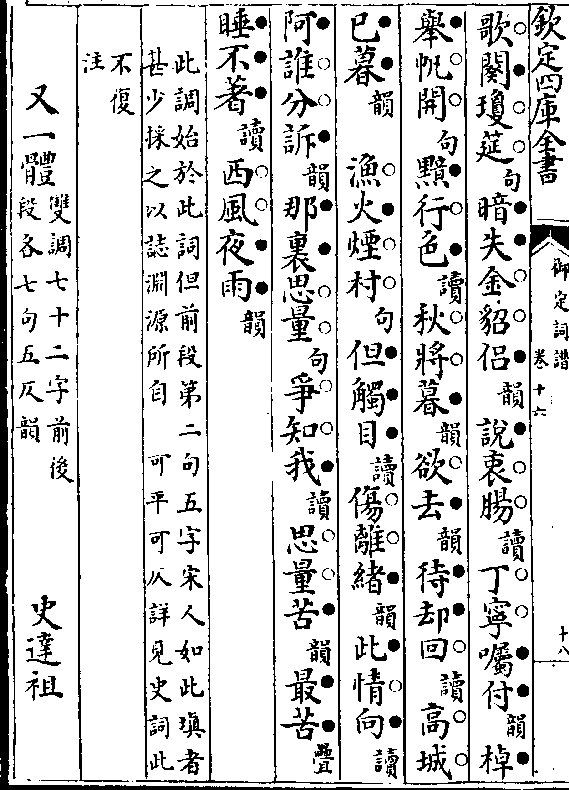 欽定四庫全書
御定詞譜 卷十六
十八
歌闋瓊筵句暗失金貂侶韻說衷腸讀丁寧囑付韻棹
舉帆開句黯行色讀秋將暮韻欲去韻待却回讀高城
已暮韻 漁火煙村句但觸目讀傷離緒韻此情向讀
阿誰分訴韻那裏思量句爭知我讀思量苦韻最苦疊
睡不著讀西風夜雨韻
此調始於此詞但前段第二句五字宋人如此填者
甚少採之以誌淵源所自 可平可仄詳見史詞此
不復
注
又一體 雙調七十二字前後
段各七句五仄韻 史達祖